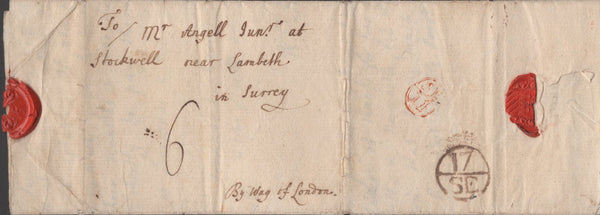 To
Mr Angell Junr. at
Stockwell near Lambeth
in Surrey
6
By Way of London.
17
SE